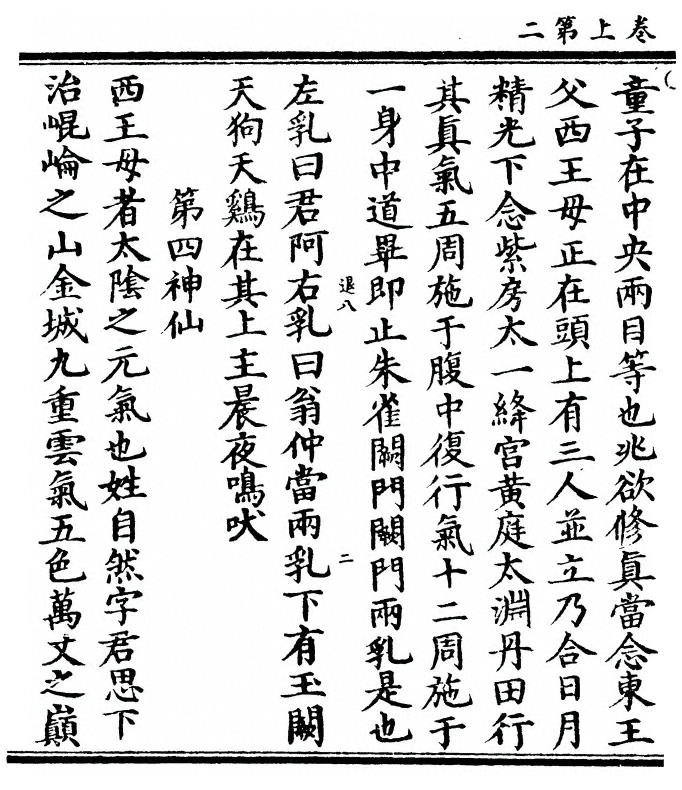 卷上第二
童子在中央兩目等也兆欲修真當念東王
父西王母正在頭上有三人並立乃合日月
精光下念紫房太一絳宮黃庭太淵丹田行
其眞氣五周施于腹中復行氣十二周施于
一身中道畢即止朱雀闕門闕門兩乳是也
退八
二
左乳曰君阿右乳曰翁仲當兩乳下有玉闕
天狗天鷄在其上主晨夜鳴吠
第四神仙
西王母者太陰之元氣也姓自然字君思下
治崐崘之山金城九重雲氣五色萬丈之巔